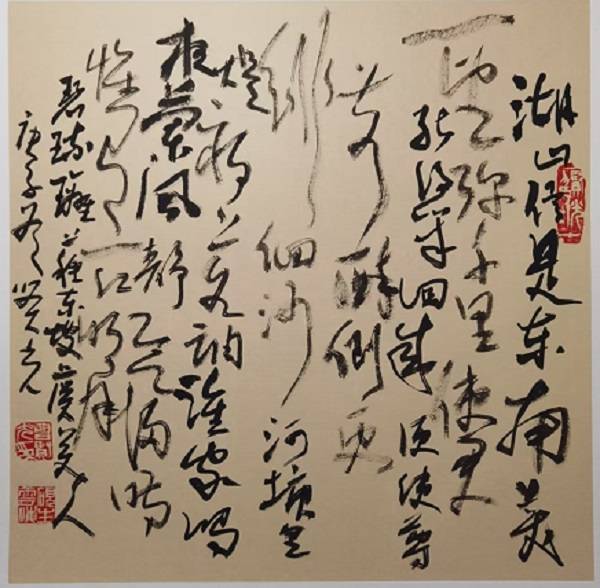 湖山信是东南美
一望弥千里使君
能得几回来便使尊
前醉倒更
徘徊沙河塘里
灯初上水调谁家唱
夜阑风静欲归时
惟有一江明月
碧琉璃苏东坡虞美人
庚子冬